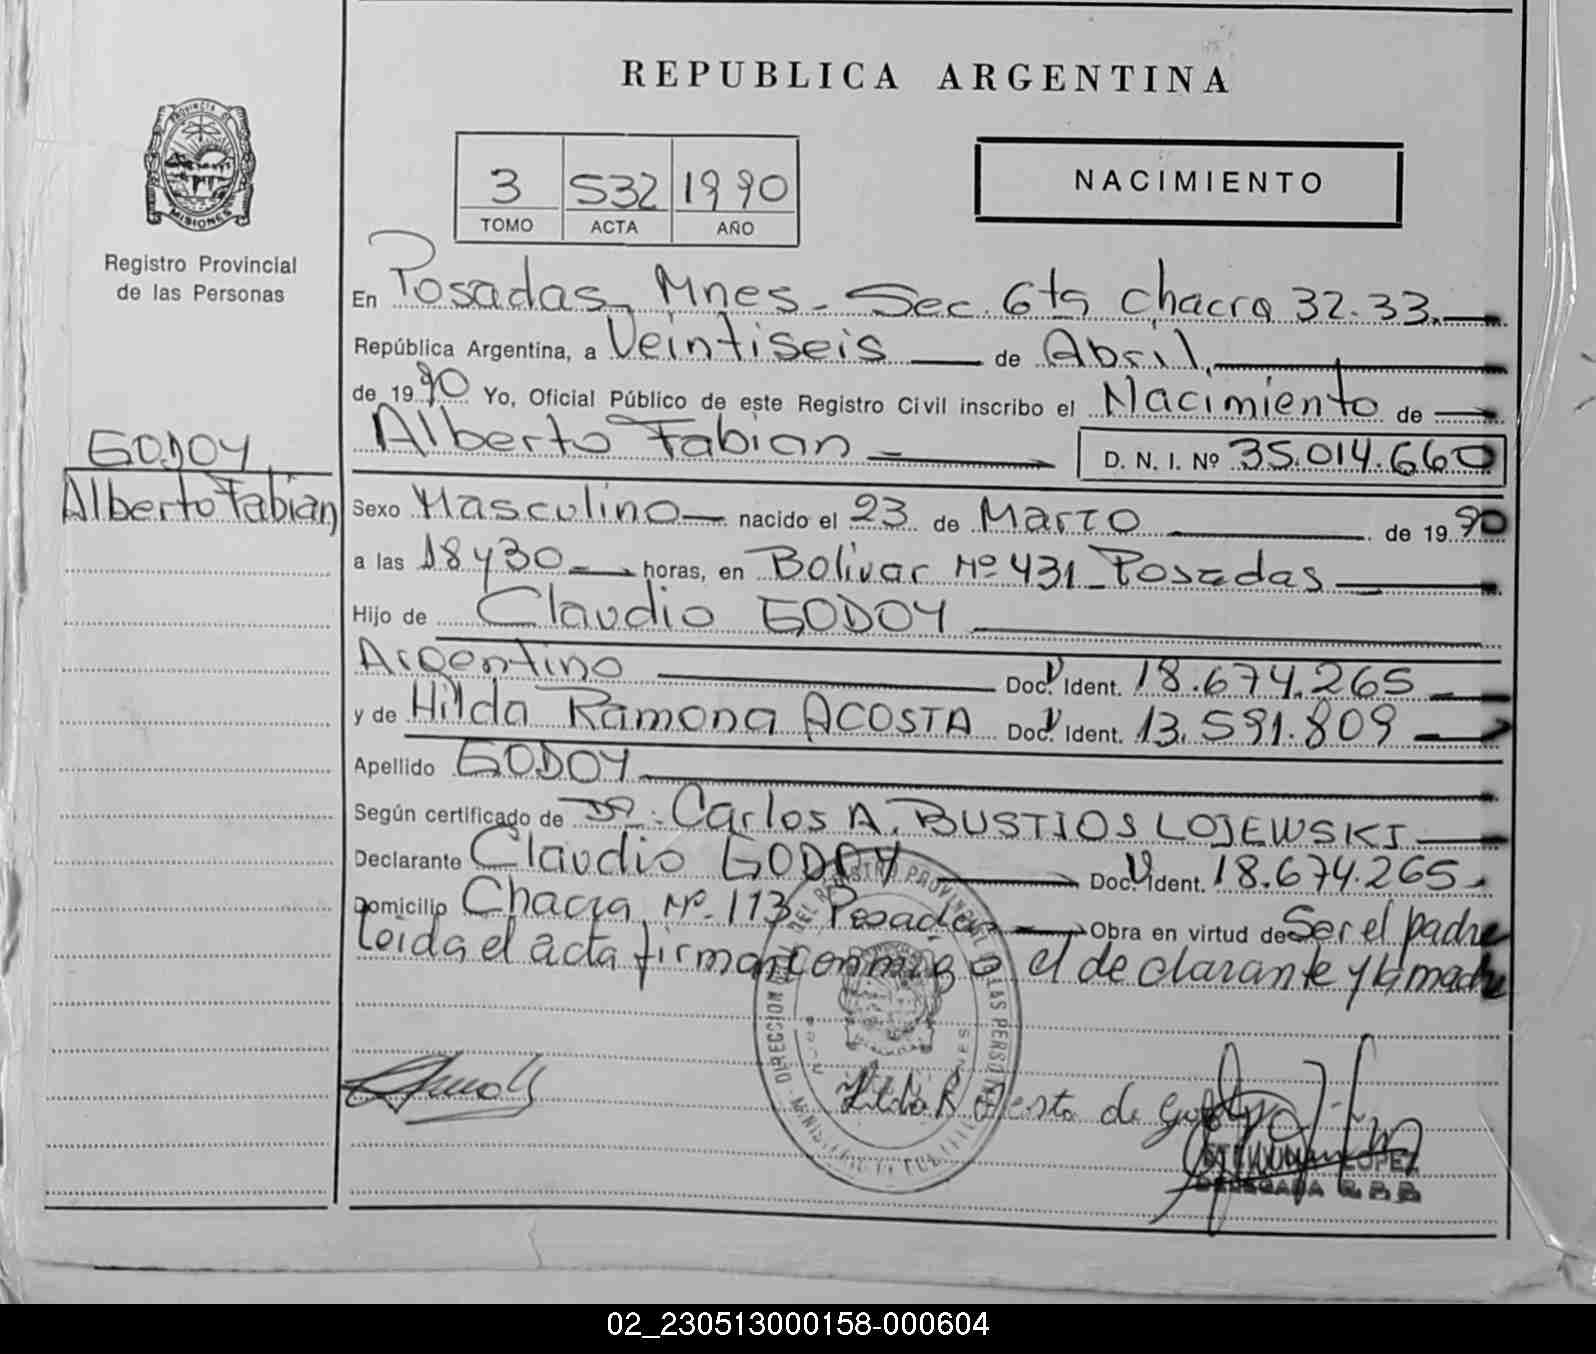 REPUBLICA ARGENTINA
PROVINCIA DE
MISIONES
Registro Provincial
de las Personas
3 532 1990
TOMO ACTA AÑO
NACIMIENTO
En Posadas, Mnes - Sec. 6ta chacra 32-33.
República Argentina, a Veintiseis de Abril
de 1990 Yo, Oficial Público de este Registro Civil inscribo el Nacimiento de
Alberto Fabian D. N. I. Nº 35.014.660
GODOY
Alberto Fabian
Sexo Masculino nacido el 23 de Marzo de 1990
a las 18 y 30 horas, en Bolivar Nº 431 - Posadas
Hijo de Claudio GODOY
Argentino Doc. Ident. 18.674.265
y de Hilda Ramona ACOSTA Doc. Ident. 13.591.809
Apellido GODOY
Según certificado de Dr. Carlos A. BUSTIOS LOJEWSKI
Declarante Claudio GODOY Doc. Ident. 18.674.265
Domicilio Chacra Nº 113 Posadas Obra en virtud de Ser el padre
Leida el acta firman conmigo el declarante y la madre
DIRECCION DEL REGISTRO PROVINCIAL DE LAS PERSONAS
Hilda R Acosta de Godoy
LOPEZ
DELEGADA
02_230513000158-000604